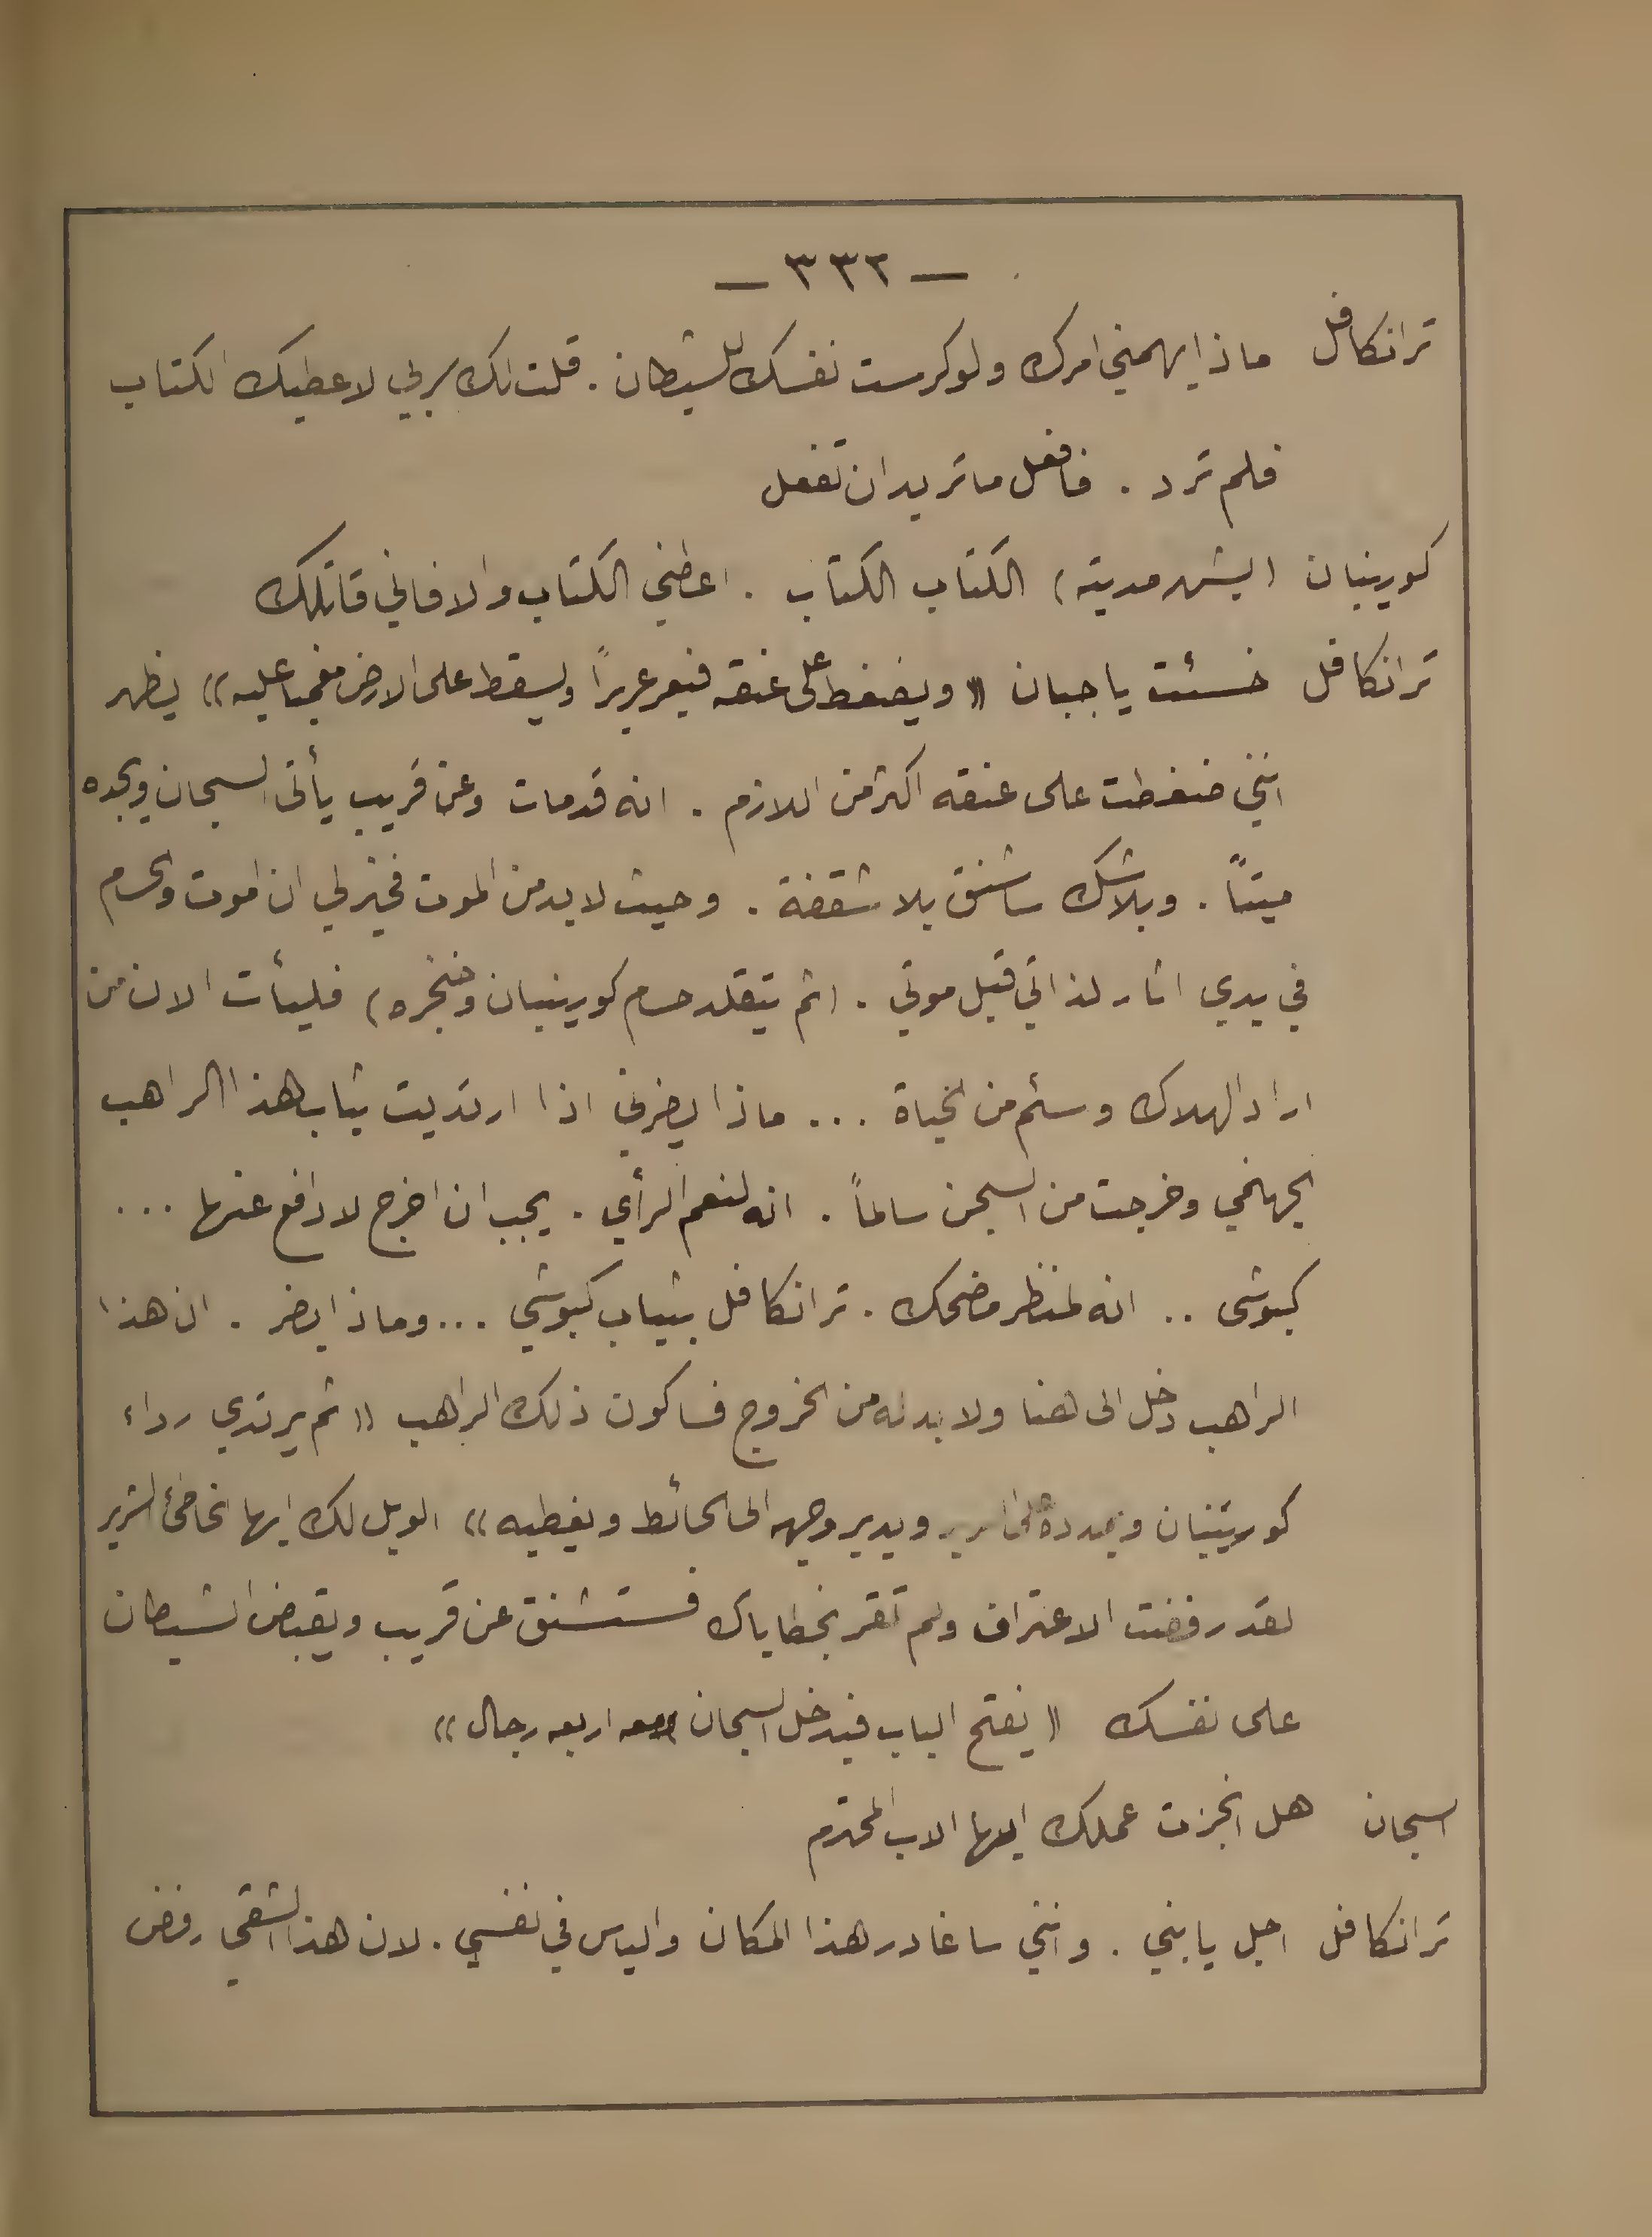 — ٣٣٢ —
ترانكافل ماذا يهمني امرك ولو كرست نفسك للشيطان . قلت لك سر بي لاعطيك الكتاب
فلم ترد . فافعل ما تريد ان تفعل
كورينيان (يشهر مديته) الكتاب الكتاب . اعطني الكتاب والا فاني قاتلك
ترانكافل خسئت يا جبان «ويضغط على عنقه فيعر عريرًا ويسقط على الارض مغميا عليه» يظهر
انني ضغطت على عنقه اكثر من اللازم . انه قد مات وعن قريب يأتى السجان ويجده
ميتًا . وبلا شك ساشنق بلا شفقة . وحيث لا بد من الموت فخير لي ان اموت والحسام
في يدي اثار لذاتي قبل موتي . (ثم يتقلد حسام كورينيان وخنجره) فليأت الان من
اراد الهلاك وسئم من الحياة ... ماذا يضرني اذا ارتديت ثياب هذا الراهب
الجهنمي وخرجت من السجن سالماً . انه لنعم الرأي . يجب ان اخرج لادافع عنها ...
كبوشى .. انه لمنظر مضحك . ترانكافل بثياب كبوشي ... وماذا يضر . ان هذا
الراهب دخل الى هنا ولا بد له من الخروج فساكون ذلك الراهب «ثم يرتدي رداء
كورينيان ويمدده على السرير ويدير وجهه الى الحائط ويغطيه» الويل لك ايها الخاطئ الشرير
لقد رفضت الاعتراف ولم تقر بخطاياك فستشنق عن قريب ويقبض الشيطان
على نفسك «يفتح الباب فيدخل السجان ومعه اربعه رجال»
السجان هل انجزت عملك ايها الاب المحترم
ترانكافل اجل يا بني . وانني ساغادر هذا المكان والياس في نفسي . لان هذا الشقي رفض